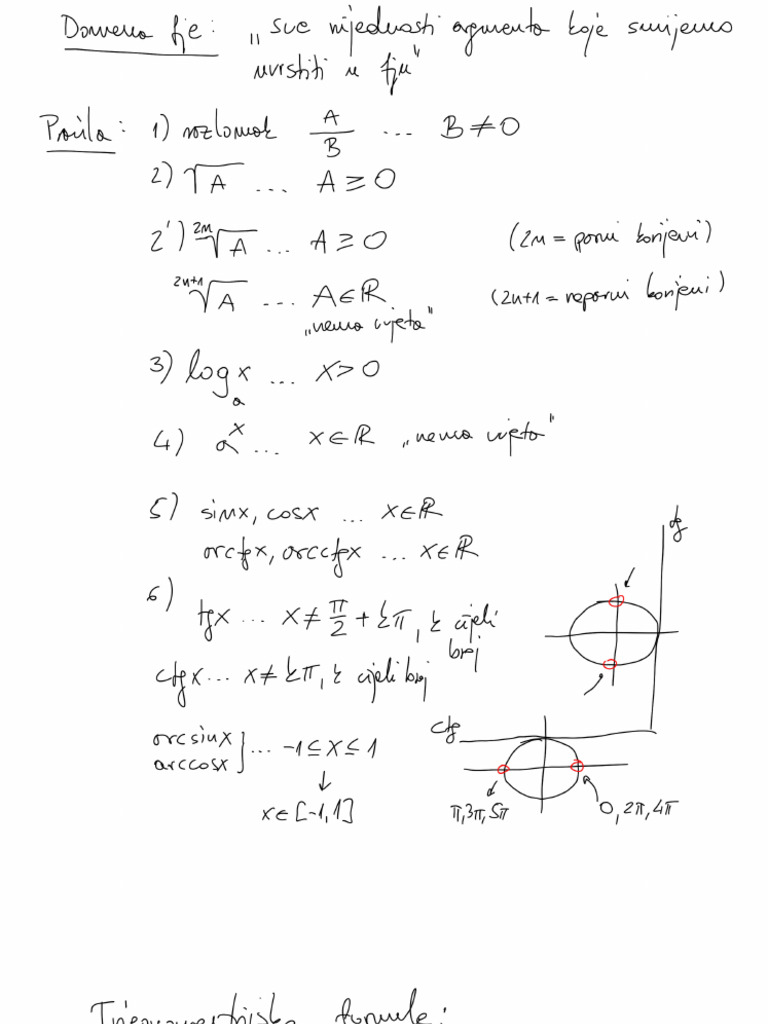 Domena fje: „sve vrijednosti argumenta koje smijemo
uvrstiti u fju"
Pravila: 1) razlomak A/B ... B ≠ 0
2) √A ... A ≥ 0
2') ²ⁿ√A ... A ≥ 0 (2n = parni korijeni)
²ⁿ⁺¹√A ... A ∈ ℝ (2n+1 = neparni korijeni)
„nema uvjeta"
3) logₐ x ... x > 0
4) aˣ ... x ∈ ℝ „nema uvjeta"
5) sinx, cosx ... x ∈ ℝ
arctgx, arcctgx ... x ∈ ℝ
tg
6) tgx ... x ≠ π/2 + kπ, k cijeli
broj
ctgx ... x ≠ kπ, k cijeli broj
ctg
arcsinx
arccosx } ... -1 ≤ x ≤ 1
↓
x ∈ [-1,1]
π, 3π, 5π
0, 2π, 4π
Trigonometrijske formule: